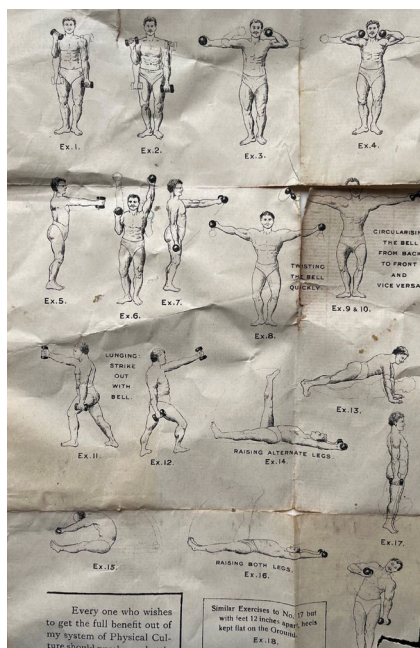 Ex.1.
Ex.2.
Ex.3.
Ex.4.
Ex.5.
Ex.6.
Ex.7.
Ex.8.
TWISTING
THE BELL
QUICKLY.
Ex.9 & 10.
CIRCULARISING
THE BELL
FROM BACK
TO FRONT
AND
VICE VERSA
LUNGING:
STRIKE
OUT
WITH
BELL.
Ex.11
Ex.12.
RAISING ALTERNATE LEGS.
Ex.14.
Ex.13.
Ex.17.
Ex.15.
RAISING BOTH LEGS.
Ex.16.
Every one who wishes
to get the full benefit out of
my system of Physical Cul-
ture should
Similar Exercises to No. 17 but
with feet 12 inches apart, heels
kept flat on the Ground.
Ex.18.